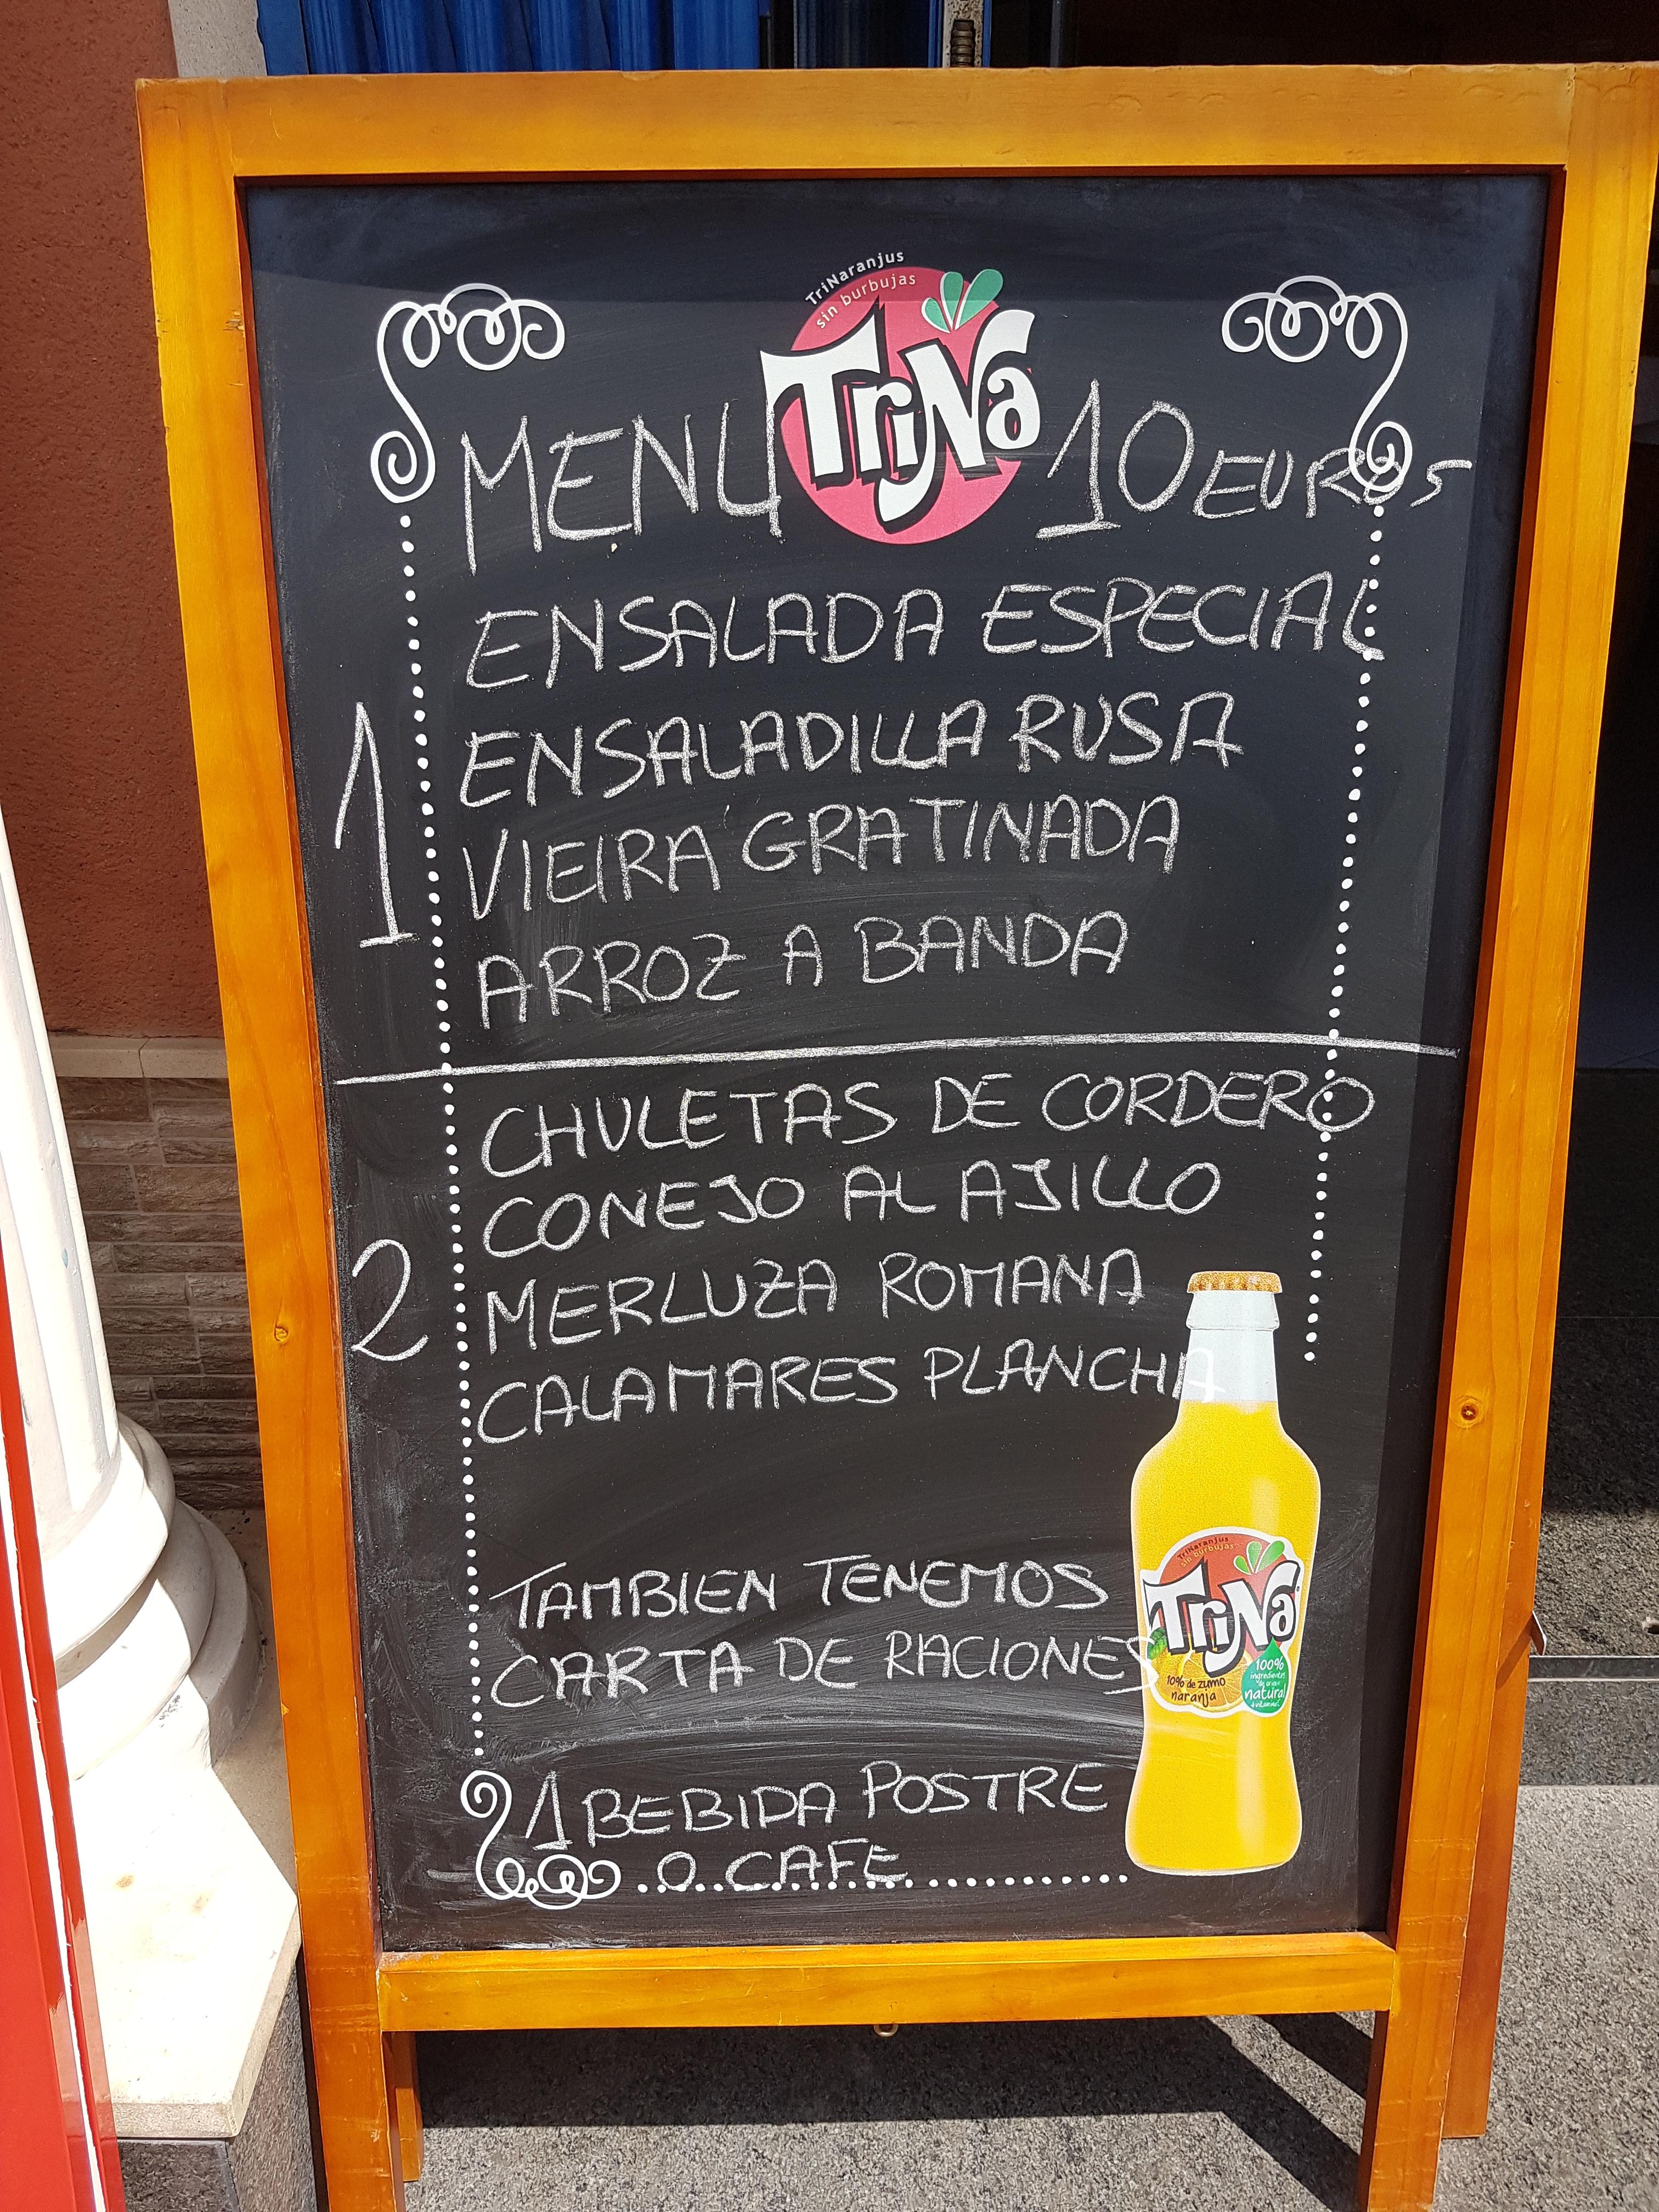 TriNaranjus
sin burbujas
TriNa
MENU 10 EUROS
ENSALADA ESPECIAL
ENSALADILLA RUSA
1
VIEIRA GRATINADA
ARROZ A BANDA
CHULETAS DE CORDERO
CONEJO AL AJILLO
2
MERLUZA ROMANA
CALAMARES PLANCHA
TAMBIEN TENEMOS
CARTA DE RACIONES
TriNaranjus
sin burbujas
TriNa
10% de zumo
naranja
100%
ingredientes
natural
1 BEBIDA POSTRE
O CAFE